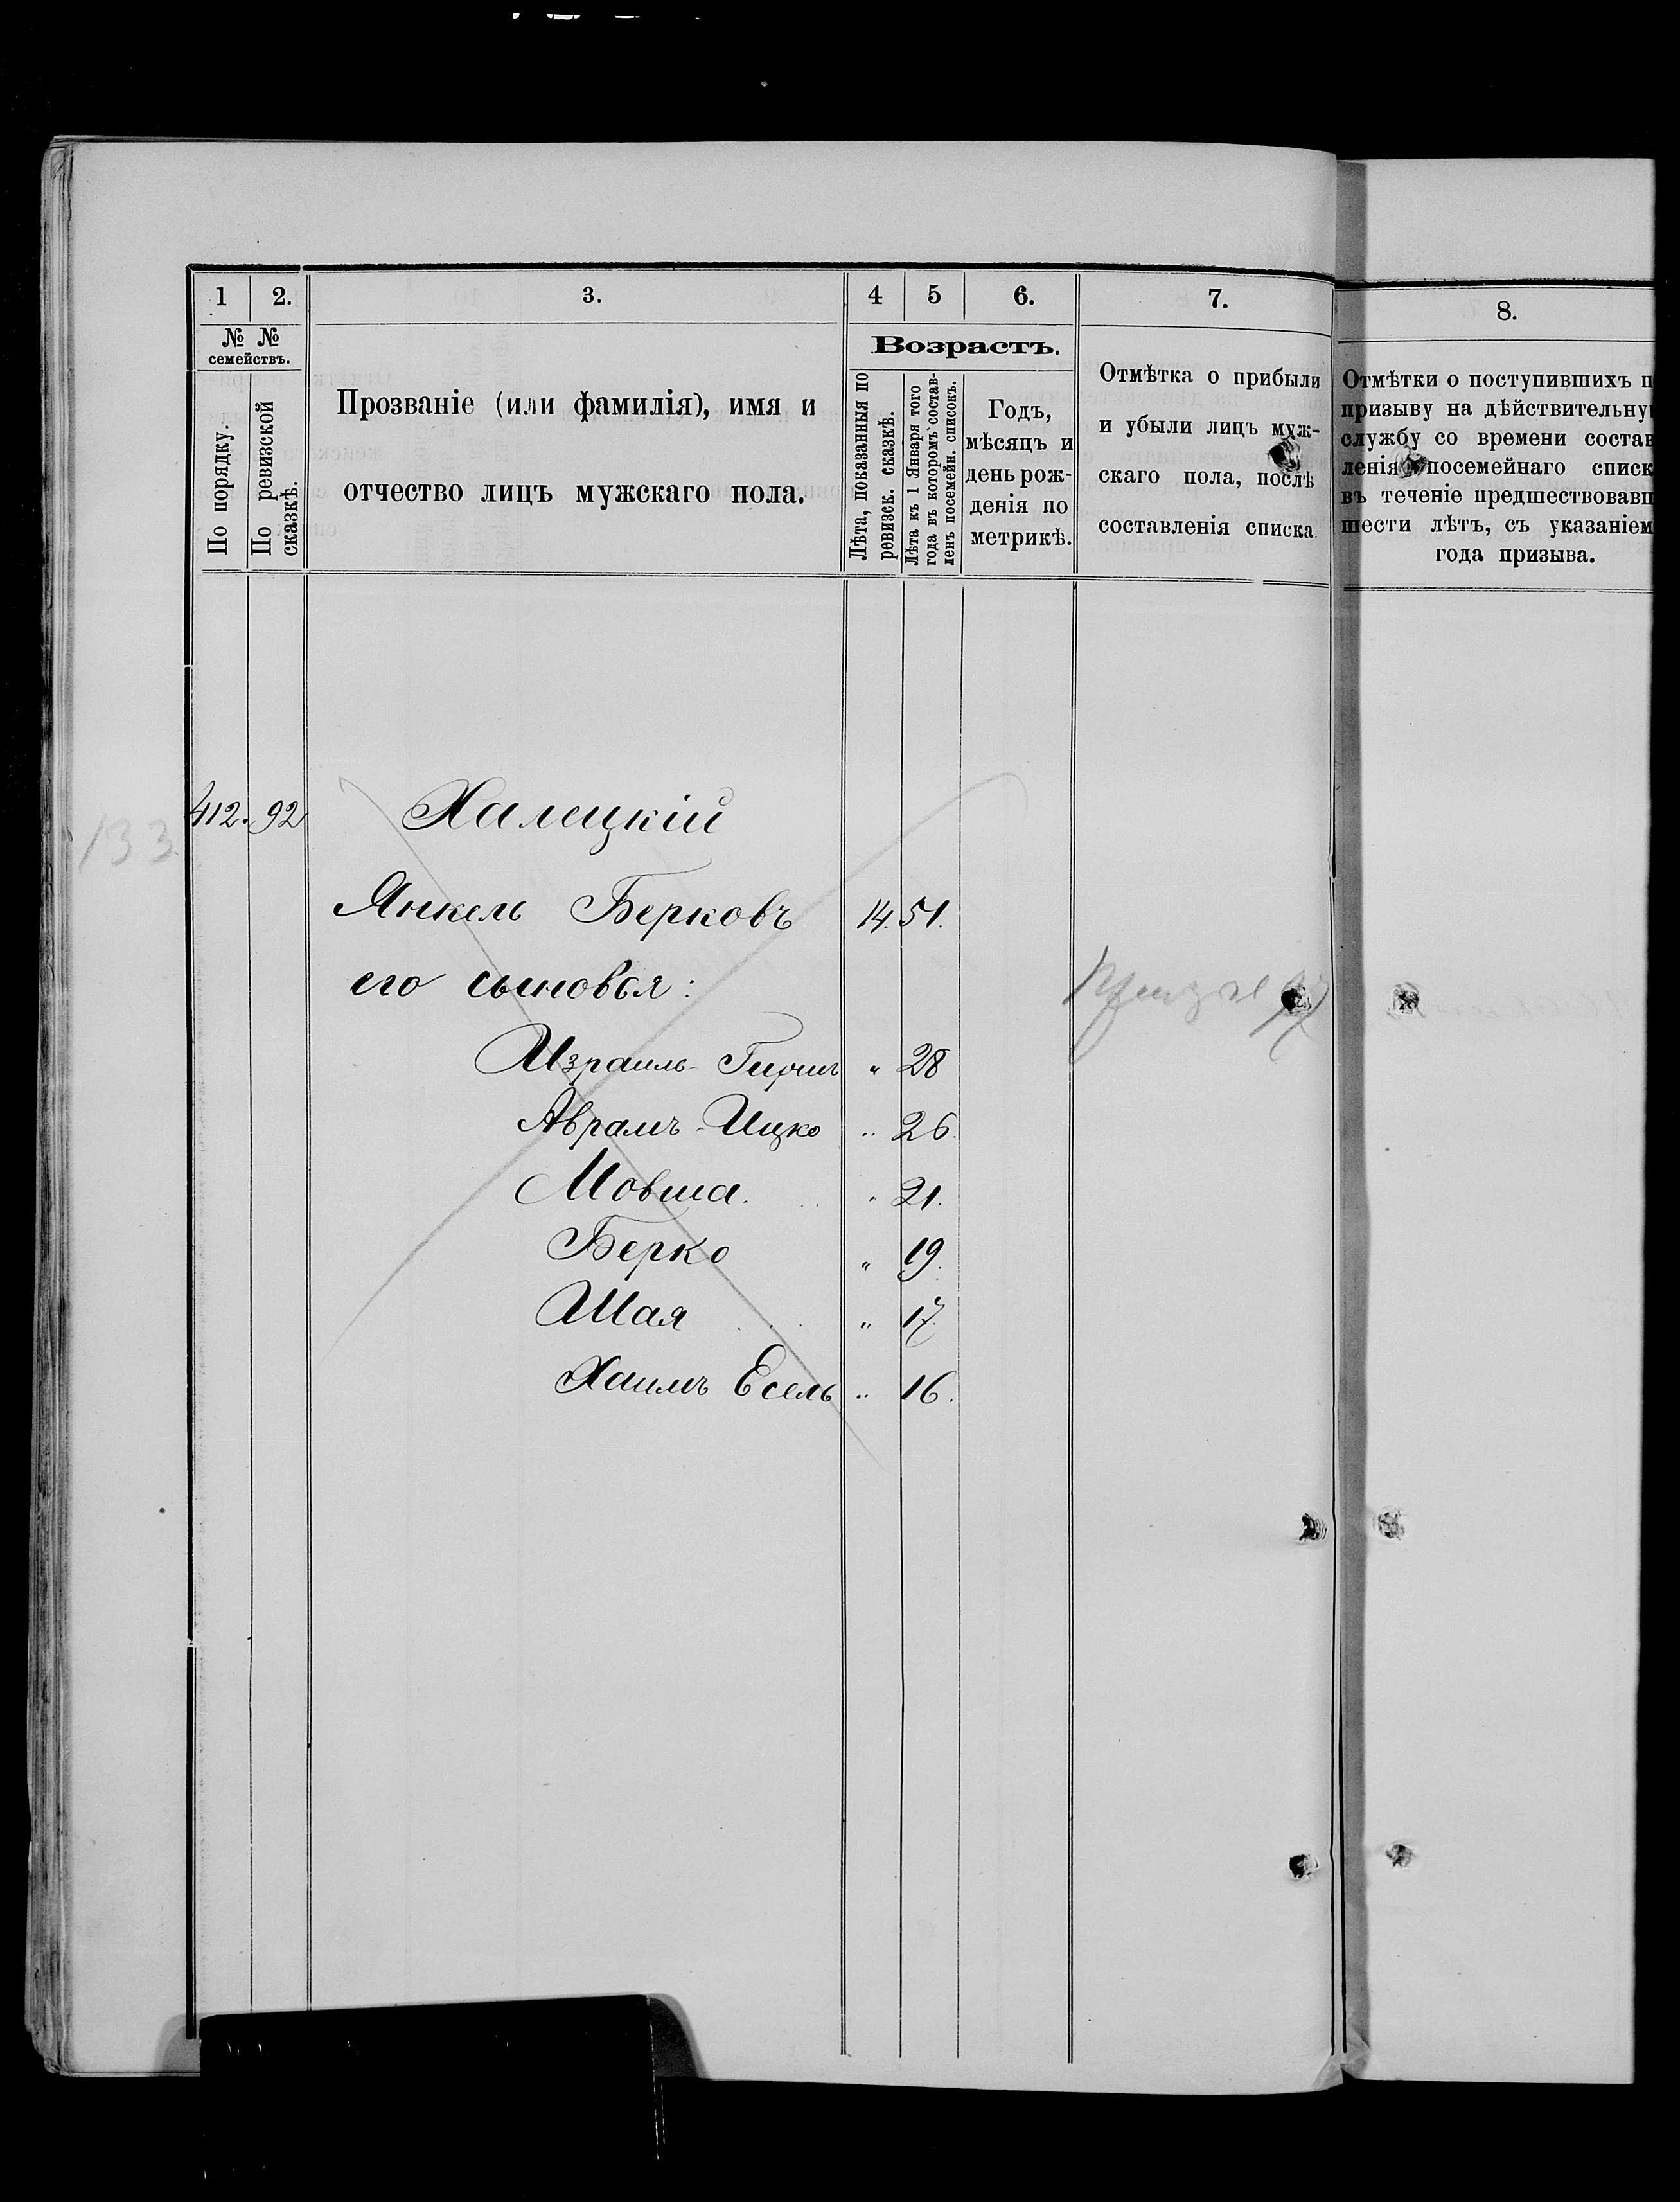 1 2. 3. 4 5 6. 7. 8.
№ №
семействъ.
По порядку.
По ревизской
сказкѣ.
Прозваніе (или фамилія), имя и
отчество лицъ мужскаго пола.
Возрастъ.
Лѣта, показанныя по
ревизск. сказкѣ.
Лѣта къ 1 Января того
года въ которомъ состав-
ленъ посемейн. списокъ.
Годъ,
мѣсяцъ и
день рож-
денія по
метрикѣ.
Отмѣтка о прибыли
и убыли лицъ муж-
скаго пола, послѣ
составленія списка.
Отмѣтки о поступившихъ п
призыву на дѣйствительну
службу со времени состав
ленія посемейнаго списк
въ теченіе предшествовавш
шести лѣтъ, съ указаніем
года призыва.
133
412. 92 Халецкій
Янкель Берковъ 14. 51.
его сыновья:
Израиль-Гирш " 28
Аврамъ-Ицко " 26.
Мовша. " 21.
Берко " 19.
Шая " 17.
Хаимъ Есель " 16.